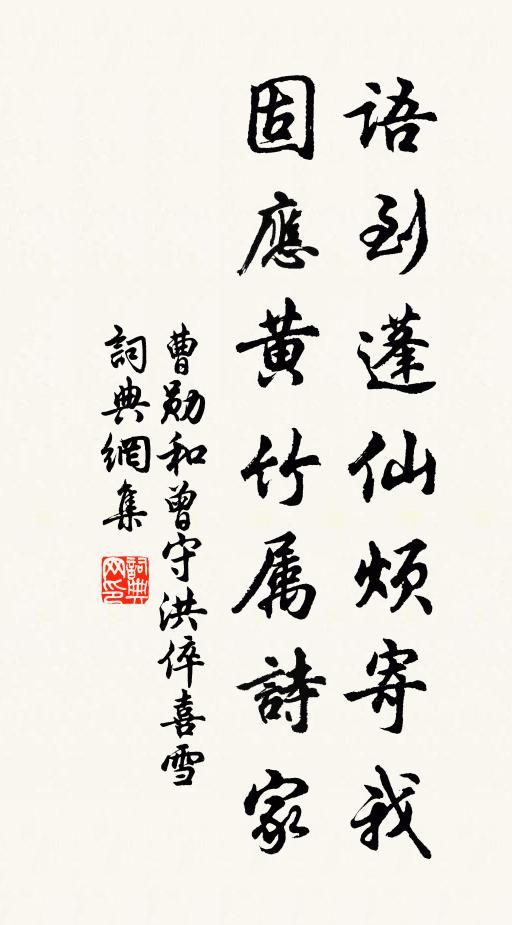 語到蓬仙煩寄我
固應黃竹属詩家
曹勛和曾守洪倅喜雪
詞典網集
詞典網印